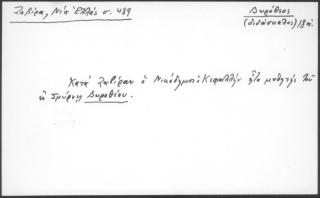 Ζαβίρα, Νέα Ἑλλάς σ. 489
Δωρόθεος
(διδάσκαλος) 18 αἰ.
Κατὰ Ζαβίραν ὁ Νικόδημος Κεφαλλήν ἦτο μαθητής τοῦ
ἐν Σμύρνῃ Δωροθέου.